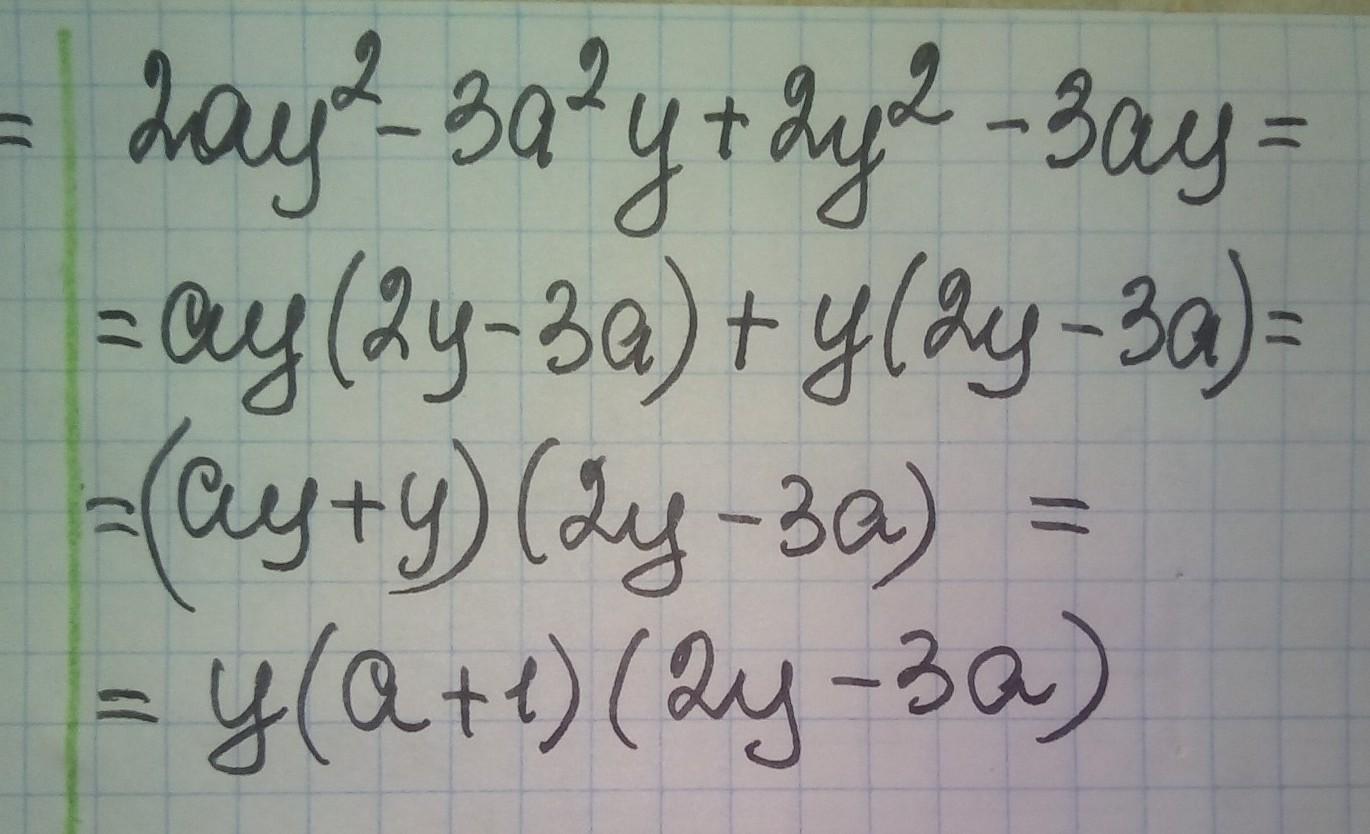 = 2ay² - 3a²y + 2y² - 3ay =
= ay(2y - 3a) + y(2y - 3a) =
= (ay + y)(2y - 3a) =
= y(a + 1)(2y - 3a)